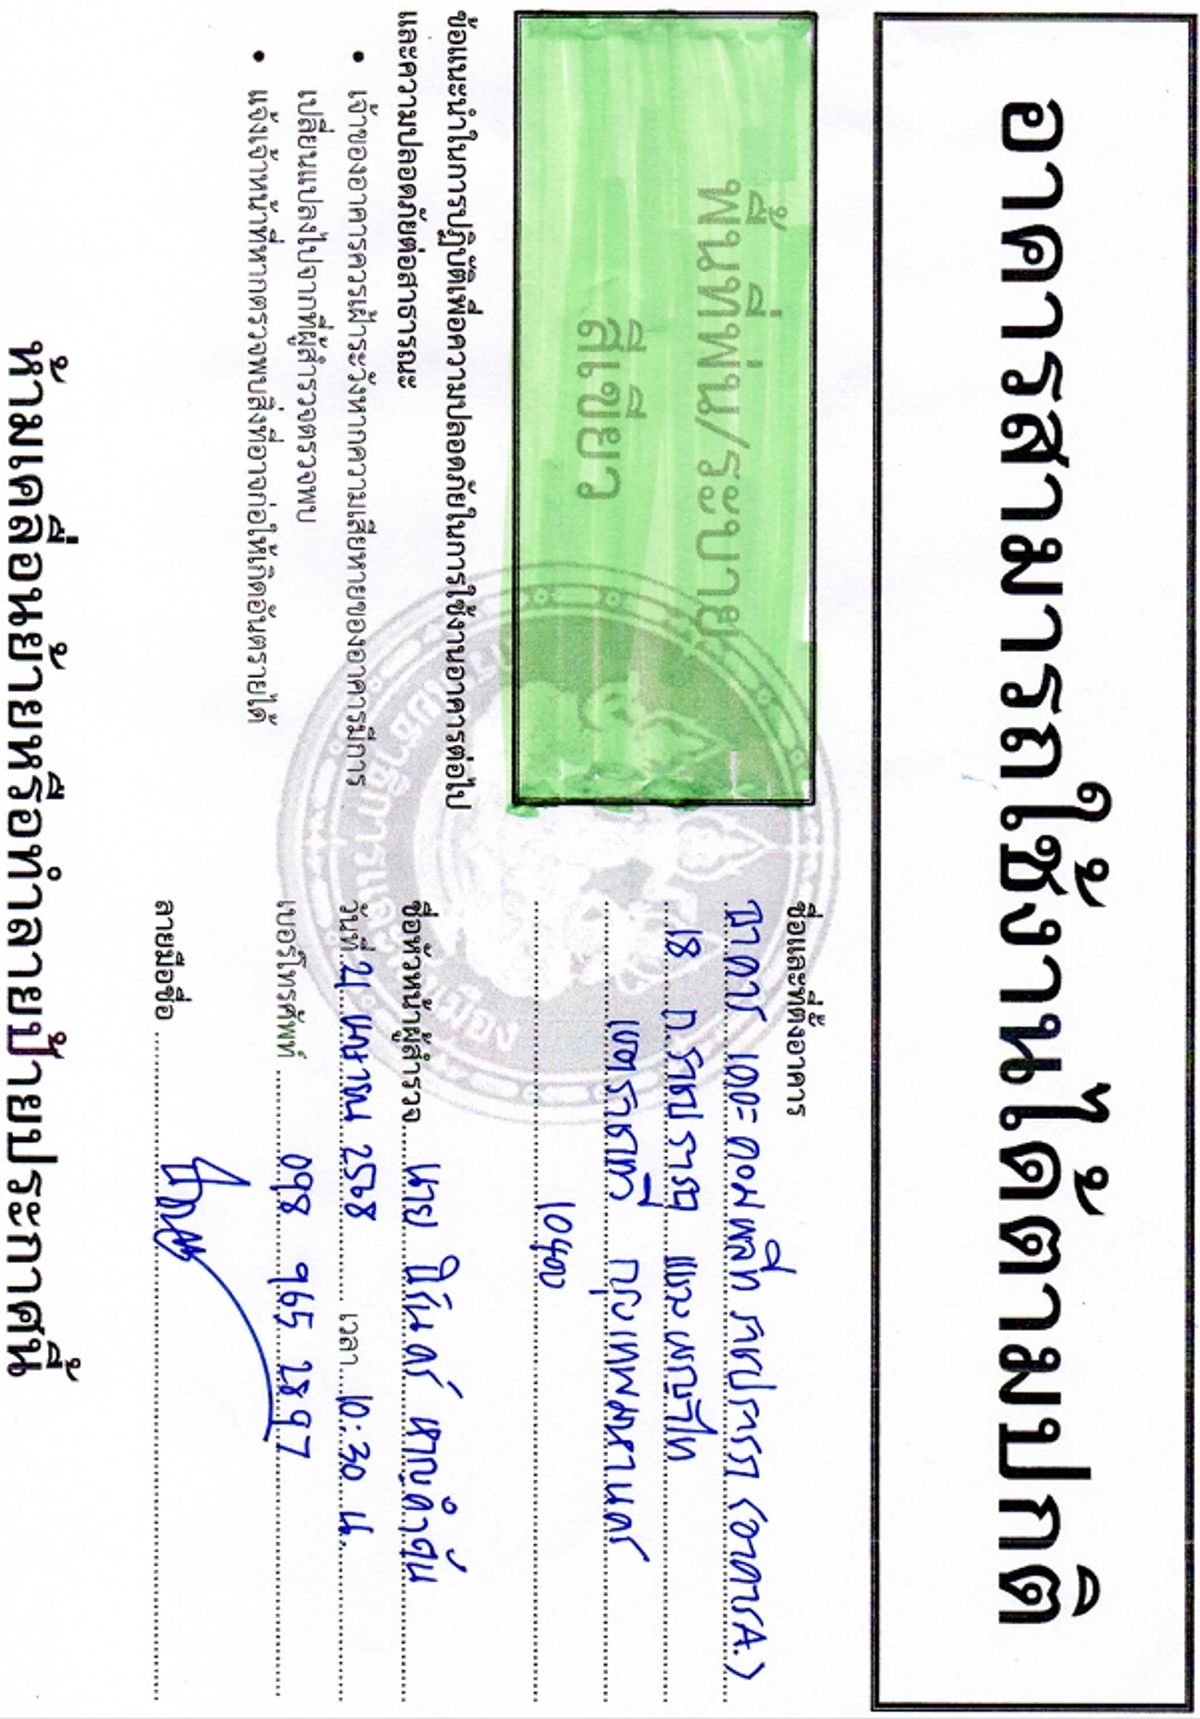 อาคารสามารถใช้งานได้ตามปกติ
พื้นที่พ่น/ระบาย
สีเขียว
ข้อแนะนำในการปฏิบัติเพื่อความปลอดภัยในการใช้งานอาคารต่อไป
และความปลอดภัยต่อสาธารณะ
• เจ้าของอาคารควรเฝ้าระวังหากความเสียหายของอาคารมีการ
เปลี่ยนแปลงไปจากที่ผู้สำรวจตรวจพบ
• แจ้งเจ้าหน้าที่หากตรวจพบสิ่งที่อาจก่อให้เกิดอันตรายได้
ชื่อและที่ตั้งอาคาร
อาคาร เดอะ คอมพลีท ราชปรารภ (อาคารA.)
18 ถ.ราชปรารภ แขวง พญาไท
เขตราชเทวี กรุงเทพมหานคร
10400
ชื่อหัวหน้าผู้สำรวจ นาย นิรันดร์
วันที่ 21 เมษายน 2568 เวลา 10.30 น.
เบอร์โทรศัพท์ 098 965 2897
ลายมือชื่อ
ห้ามเคลื่อนย้ายหรือทำลายป้ายประกาศนี้